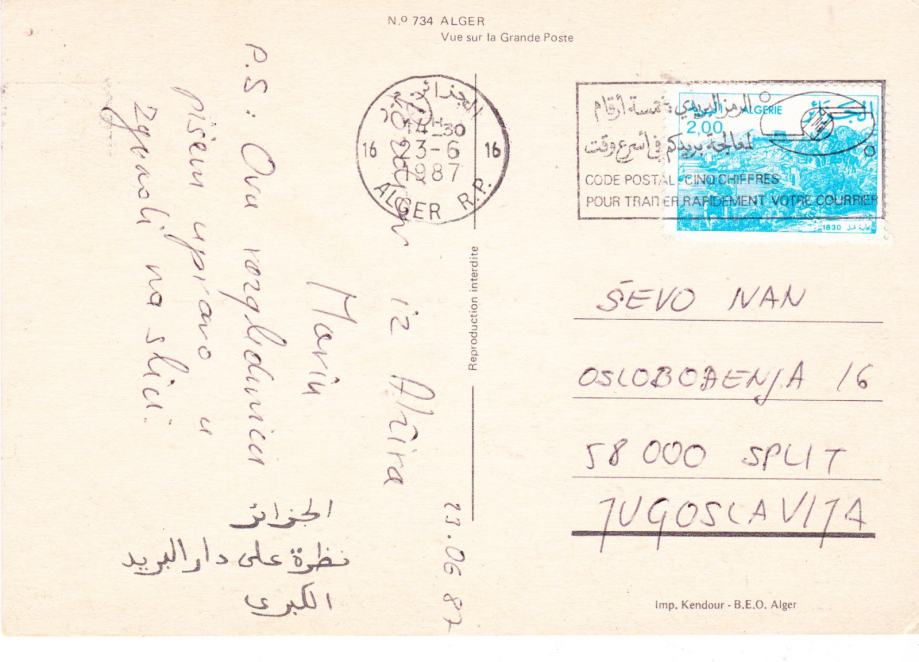 N.º 734 ALGER
Vue sur la Grande Poste
الجزائر
14-30
16 3-6 16
1987
ALGER R.P.
الرمز البريدي: خمسة أرقام
لمعالجة بريدكم في أسرع وقت
CODE POSTAL CINQ CHIFFRES
POUR TRAITER RAPIDEMENT VOTRE COURRIER
الجزائر
ALGERIE
2,00
1830
iz Alžira
Marin
P.S: Ovu razglednicu
pišem upravo u
zgradi na slici.
23.06.87
الجزائر
نظرة على دار البريد
الكبرى
Reproduction interdite
ŠEVO IVAN
OSLOBOĐENJA 16
58 000 SPLIT
JUGOSLAVIJA
Imp. Kendour - B.E.O. Alger